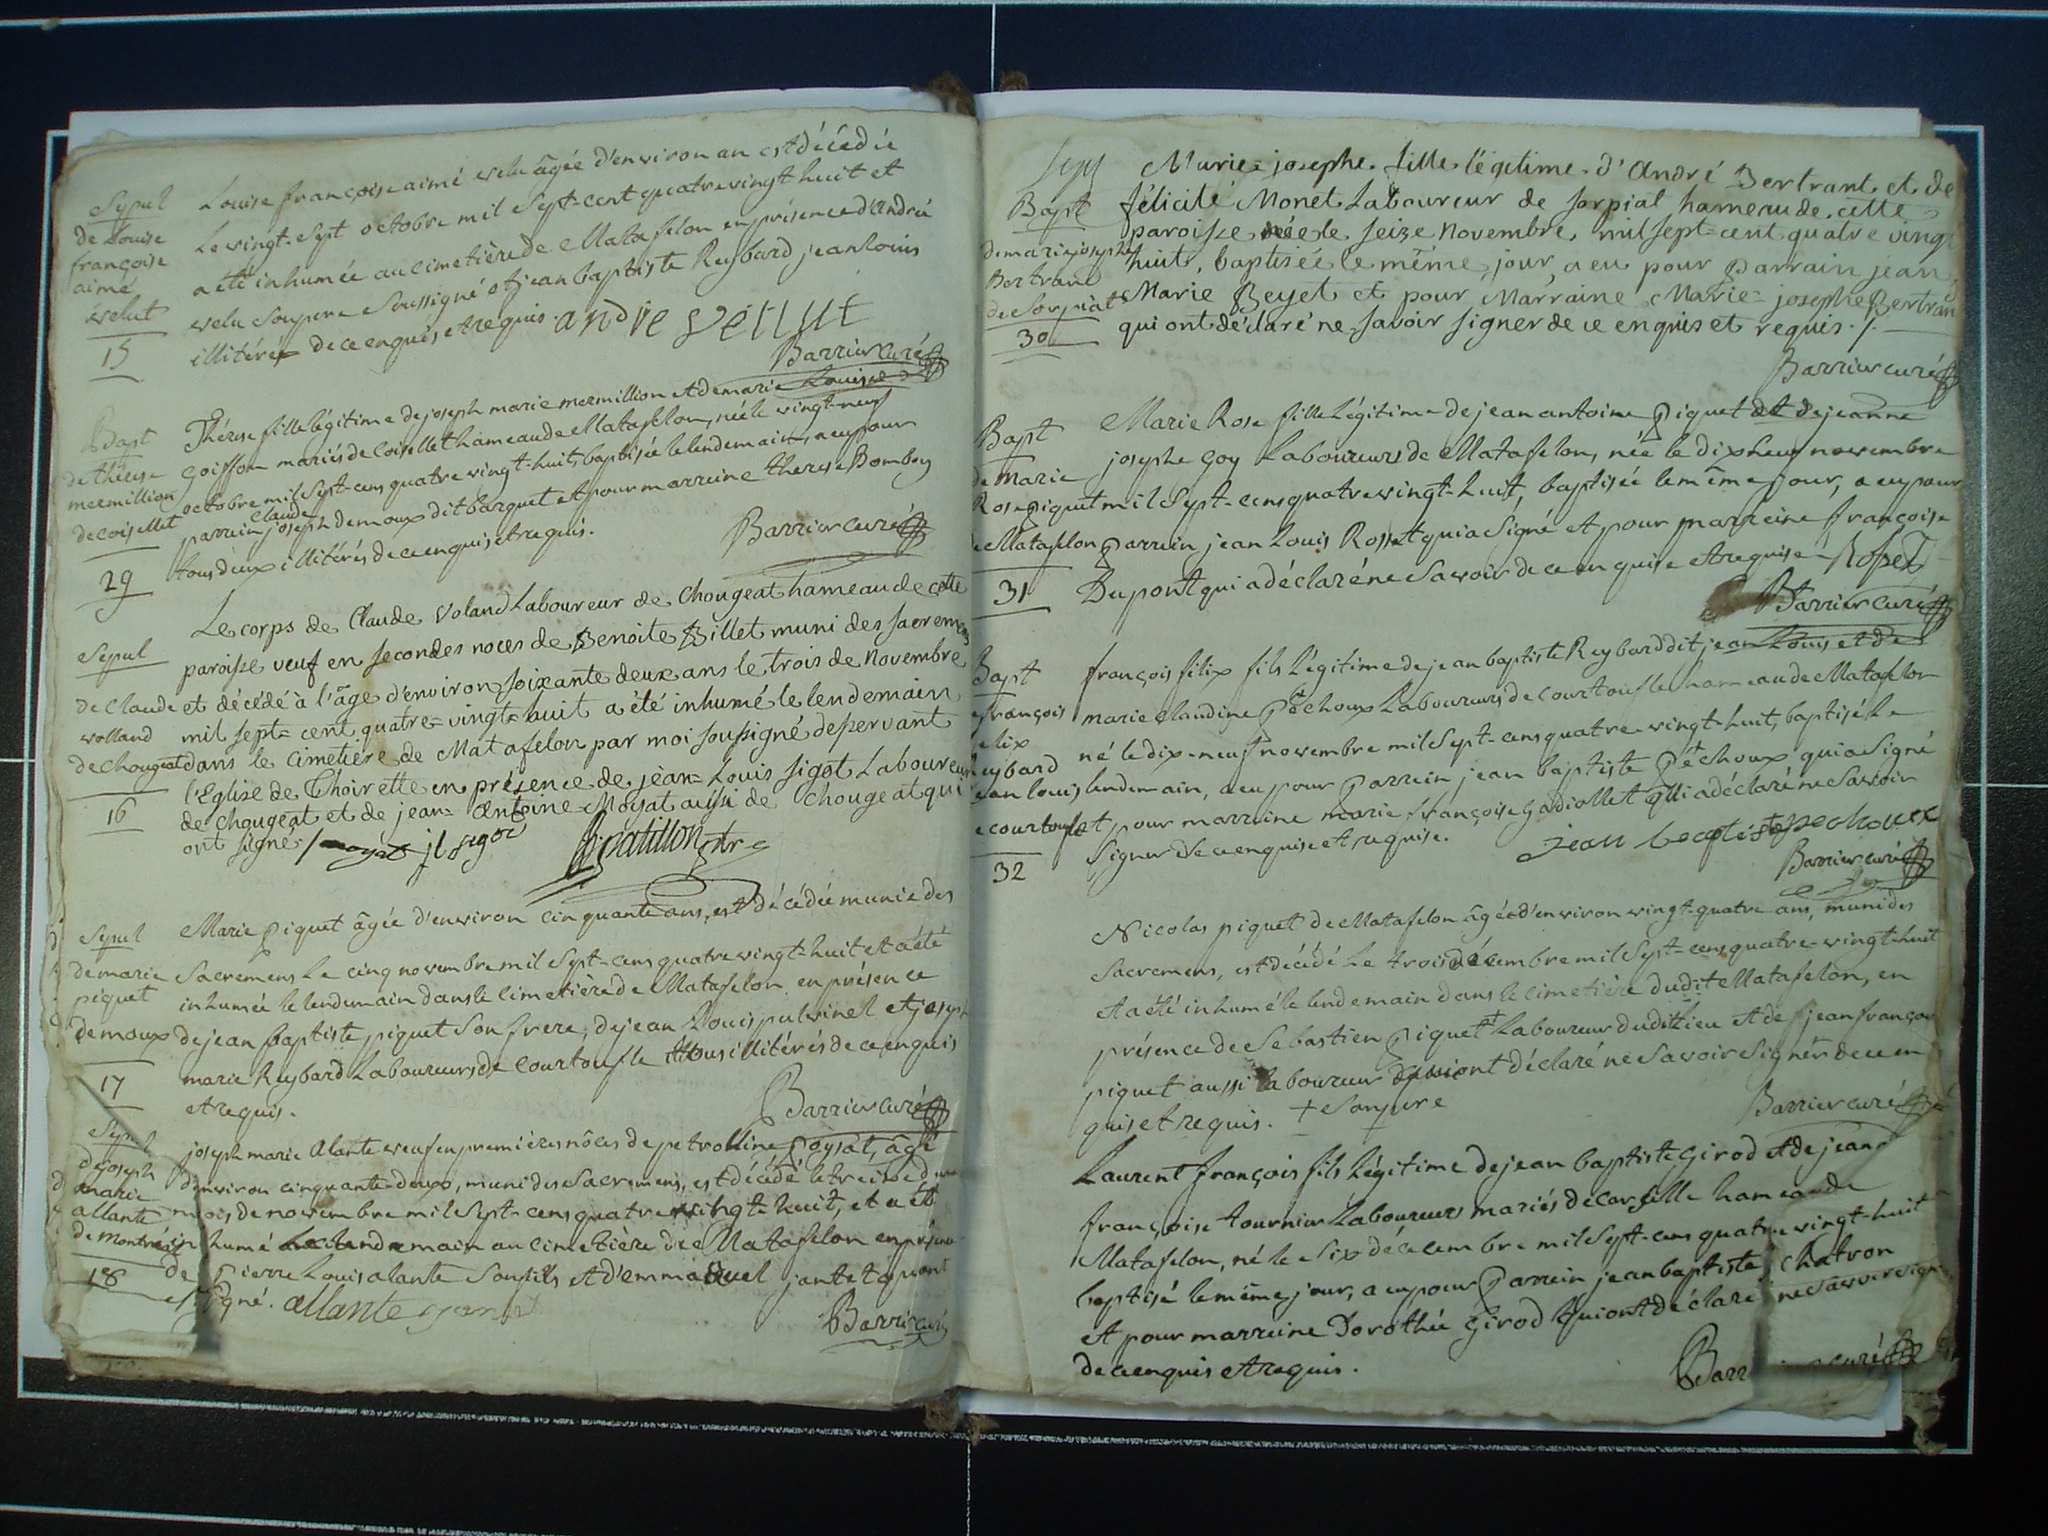 Sepul
de Louise
françoise
aimé
velut
15
Louise françoise aimé velu âgée d'environ an est décédée
le vingt-sept octobre mil sept-cent quatre vingt huit et
a été inhumée au cimetière de Matafelon en présence d'André
velu son pere soussigné et jean baptiste Reybard jean louis
illitérés de ce enquis et requis. andré velut
Barrier curé
Bapt
de thérèse
mermillion
de coisellet
29
Thérèse fille légitime de joseph marie mermillion et de marie Louise
goiffon mariés de Coisellet hameau de Matafelon, née le vingt-neuf
octobre mil sept-cens quatre vingt-huit, baptisée le lendemain, a eu pour
claude
parrain joseph demoux dit barquet et pour marreine therese Bomboy
tous deux illitérés de ce enquis et requis.
Barrier curé
Sepul
de Claude
volland
de chougeat
16
Le corps de Claude Voland Laboureur de Chougeat hameau de cette
paroisse veuf en secondes noces de Benoite Billet muni des sacremens
et décédé à l'âge d'environ soixante deux ans le trois de novembre
mil sept-cent quatre-vingt-huit a été inhumé le lendemain
dans le cimetière de Matafelon par moi soussigné desservant
l'Eglise de Thoirette en présence de jean-Louis sigot Laboureur
de chougeat et de jean-Antoine Moyat aussi de Chougeat qui
ont signés / moyat jl sigot
Sepul
de marie
piquet
demoux
17
Marie piquet âgée d'environ cinquante ans, est décédée munie des
Sacremens le cinq novembre mil sept-cens quatre vingt-huit et a été
inhumée le lendemain dans le cimetière de Matafelon en présence
de jean baptiste piquet son frere, de jean Louis pulvinel et joseph
marie Reybard Laboureurs de Courtoufle tous illitérés de ce enquis
et requis.
Barrier curé
Sepul
de joseph
marie
allante
de Montréal
18
joseph marie Alante veuf en premières nôces de petrolline Poysat, âgé
d'environ cinquante-deux, muni des Sacremens, est décédé le treize du
mois de novembre mil sept-cens quatre vingt-huit, et a été
inhumé le lendemain au cimetière de Matafelon en présence
de Pierre Louis alante son fils et d'emmanuel jantet qui ont
signé. allante
Barrier curé
Bapt
de marie josephe
Bertrand
de Sorpiat
30
Marie-josephe fille légitime d'André Bertrant et de
félicité Monet Laboureur de sorpial hameau de cette
paroisse née le seize novembre mil sept-cent quatre vingt
huit, baptisée le même jour, a eu pour Parrain jean
Marie Beyet et pour Marraine Marie-josephe Bertrand
qui ont déclaré ne savoir signer de ce enquis et requis. /.
Barrier curé
Bapt
de Marie
Rose piquet
de Matafelon
31
Marie Rose fille légitime de jean antoine Piquet et de jeanne
josephe Goy Laboureurs de Matafelon, née le dix neuf novembre
mil sept-cens quatre vingt-huit, baptisée le même jour, a eu pour
parrain jean Louis Rosset qui a signé et pour marreine françoise
Dupont qui a déclaré ne savoir de ce enquise et requise Rosset
Barrier curé
Bapt
françois
felix
reybard
jean louis
de courtoufle
32
françois félix fils légitime de jean baptiste Reybard dit jean Louis et de
marie claudine Péchoux Laboureurs de Courtoufle hameau de Matafelon
né le dix-neuf novembre mil sept-cens quatre-vingt-huit, baptisé le
lendemain, a eu pour parrain jean baptiste Péchoux qui a signé
et pour marraine marie françoise Gadiollet qui a déclaré ne savoir
signer de ce enquise et requise.
jean baptiste pechoux
Barrier curé
Nicolas piquet de Matafelon âgé d'environ vingt-quatre ans, muni des
Sacremens, est décédé le trois décembre mil sept-cens quatre-vingt-huit
et a été inhumé le lendemain dans le cimetière dudit Matafelon, en
présence de Sebastien Piquet + Laboureur dudit lieu et de jean françois
piquet aussi laboureur qui ont déclaré ne savoir signer de ce en
quis et requis. + son pere
Barrier curé
Laurent françois fils légitime de jean baptiste Girod et de jeanne
françoise tournier Laboureurs mariés de corfelle hameau de
Matafelon, né le six décembre mil sept-cens quatre vingt-huit
baptisé le même jour, a eu pour Parrain jean baptiste chatron
et pour marreine Dorothée Girod qui ont déclaré ne savoir signer
de ce enquis et requis.
Barrier curé